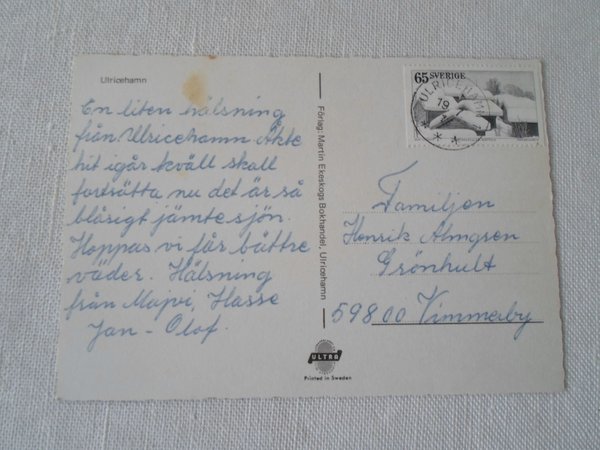 Ulricehamn
En liten hälsning
från Ulricehamn Åkte
hit igår kväll skall
fortsätta nu det är så
blåsigt jämte sjön.
Hoppas vi får bättre
väder. Hälsning
från Majvi, Hasse
Jan-Olof.
Förlag: Martin Ekeskogs Bokhandel, Ulricehamn
65 SVERIGE
ULRICEHAMN
19
Familjen
Henrik Almgren
Grönhult
59800 Vimmerby
ULTRA
Printed in Sweden